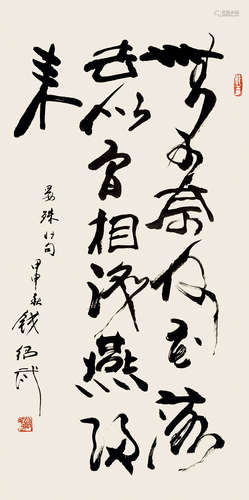 無可奈何花落
去似曾相識燕歸
来
晏殊句
甲申秋 錢绍武